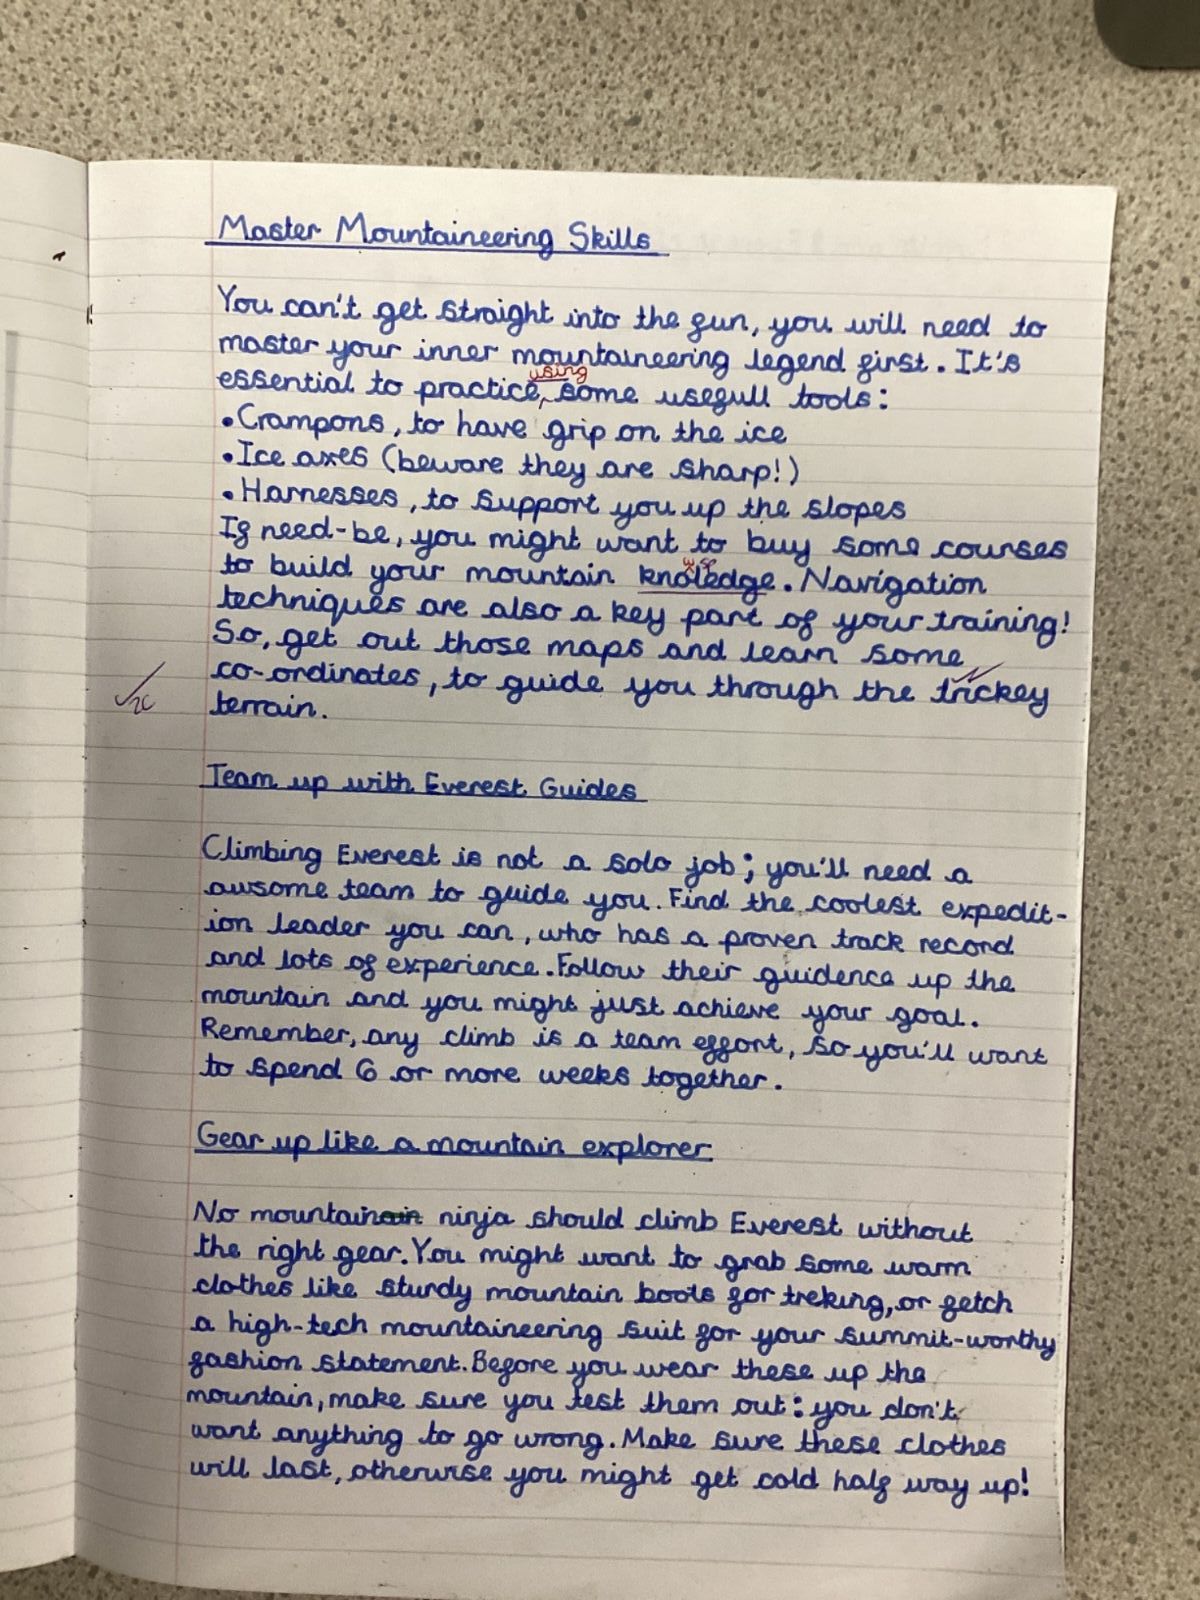 Master Mountaineering Skills
You can't get straight into the fun, you will need to
master your inner mountaineering legend first. It's
using
essential to practice, some usefull tools:
•Crampons, to have grip on the ice
•Ice axes (beware they are sharp!)
•Harnesses, to support you up the slopes
If need-be, you might want to buy some courses
w
to build your mountain knoledge. Navigation
techniques are also a key part of your training!
So, get out those maps and learn some
co-ordinates, to guide you through the trickey
terrain.
Team up with Everest Guides
Climbing Everest is not a solo job; you'll need a
awsome team to guide you. Find the coolest expedit-
ion leader you can, who has a proven track record
and lots of experience. Follow their guidence up the
mountain and you might just achieve your goal.
Remember, any climb is a team effort, so you'll want
to spend 6 or more weeks together.
Gear up like a mountain explorer
No mountain ninja should climb Everest without
the right gear. You might want to grab some warm
clothes like sturdy mountain boots for treking, or fetch
a high-tech mountaineering suit for your summit-worthy
fashion statement. Before you wear these up the
mountain, make sure you test them out: you don't
want anything to go wrong. Make sure these clothes
will last, otherwise you might get cold half way up!